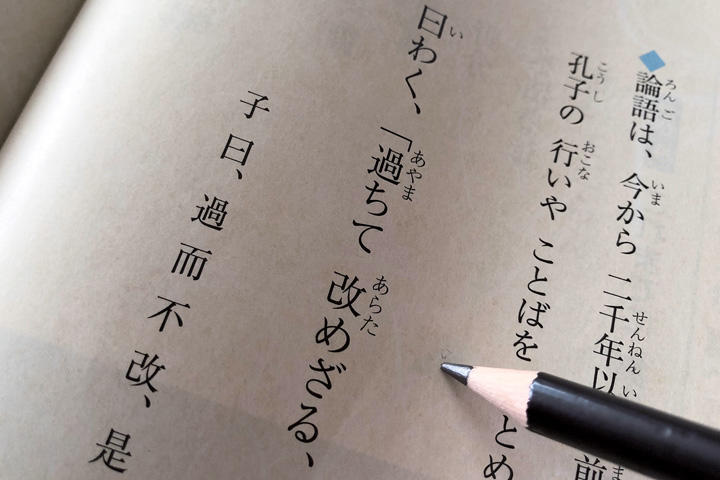 ◆論語は、今から 二千年以前
孔子の 行いや ことばを とめ
曰わく、「過ちて 改めざる、
子曰、過而不改、是